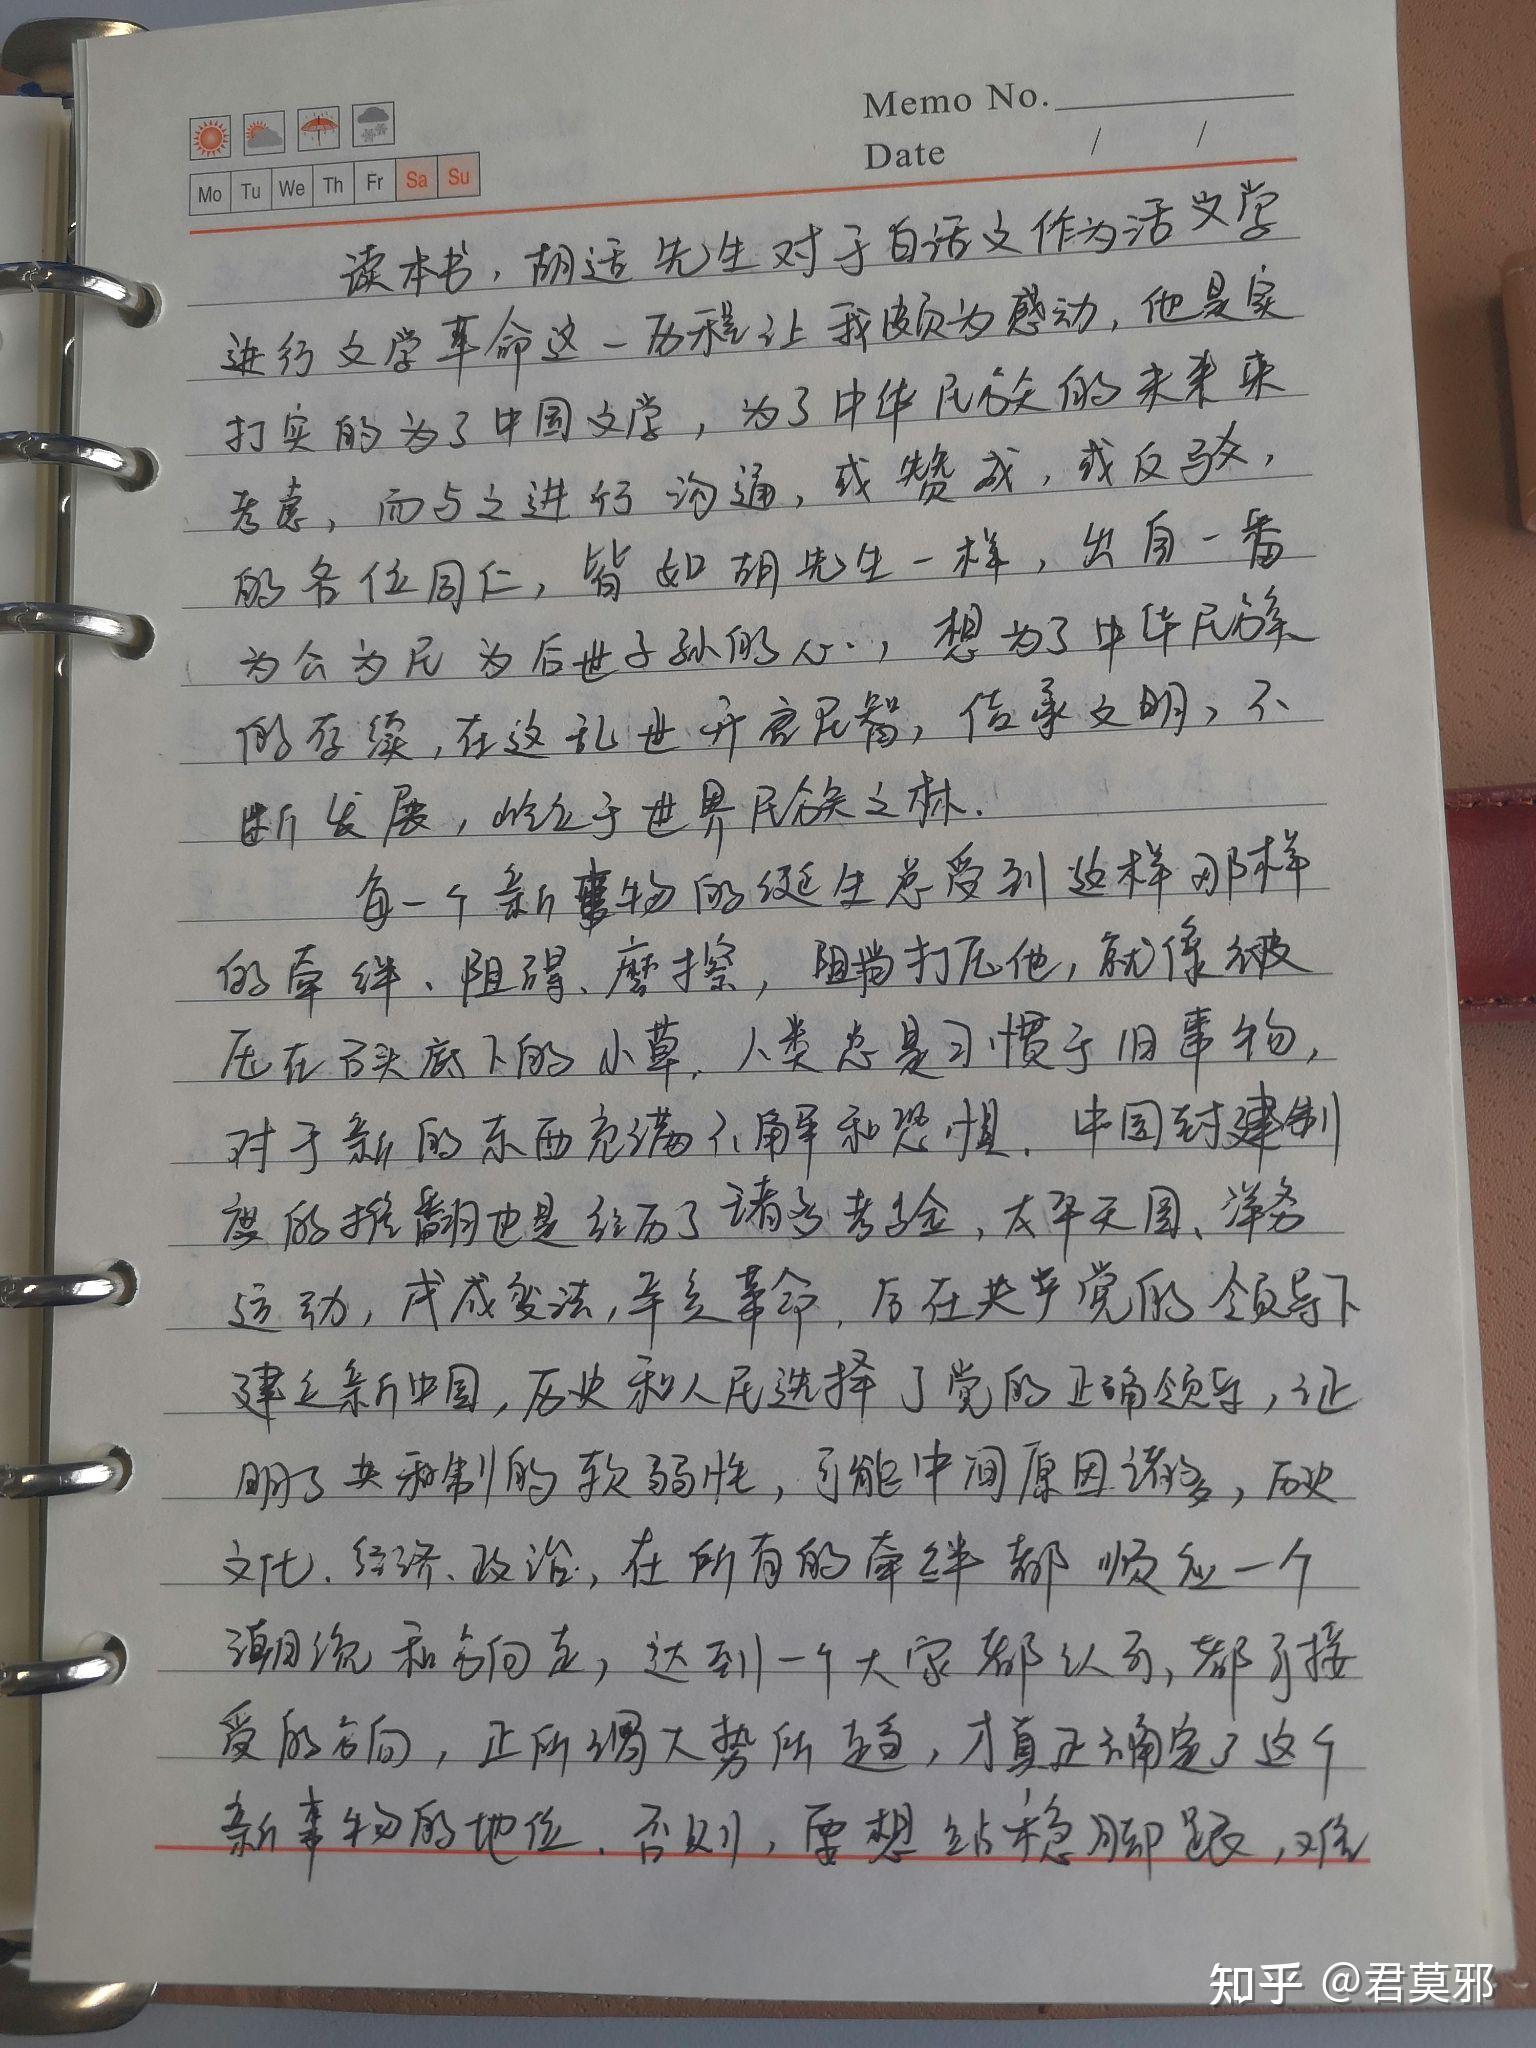 Memo No.
Date / /
Mo Tu We Th Fr Sa Su
读本书，胡适先生对于白话文作为活文学
进行文学革命这一历程让我颇为感动，他是实
打实的为了中国文学，为了中华民族的未来来
考虑，而与之进行沟通，或赞成，或反驳，
的各位同仁，皆如胡先生一样，出自一番
为公为民为后世子孙的心，想为了中华民族
的存续，在这乱世开启民智，传承文明，不
断发展，屹立于世界民族之林.
每一个新事物的诞生总受到这样那样
的牵绊、阻碍、磨擦，阻挡打压他，就像被
压在石头底下的小草.人类总是习惯于旧事物，
对于新的东西充满不解和恐惧.中国封建制
度的推翻也是经历了诸多考验，太平天国、洋务
运动，戊戌变法，辛亥革命.后在共产党的领导下
建立新中国，历史和人民选择了党的正确领导，证
明了共和制的软弱性，可能中间原因诸多，历史
文化、经济、政治，在所有的牵绊都顺应一个
潮流和方向走，达到一个大家都认可，都可接
受的方向，正所谓大势所趋，才真正确定了这个
新事物的地位.否则，要想站稳脚跟，难
知乎 @君莫邪